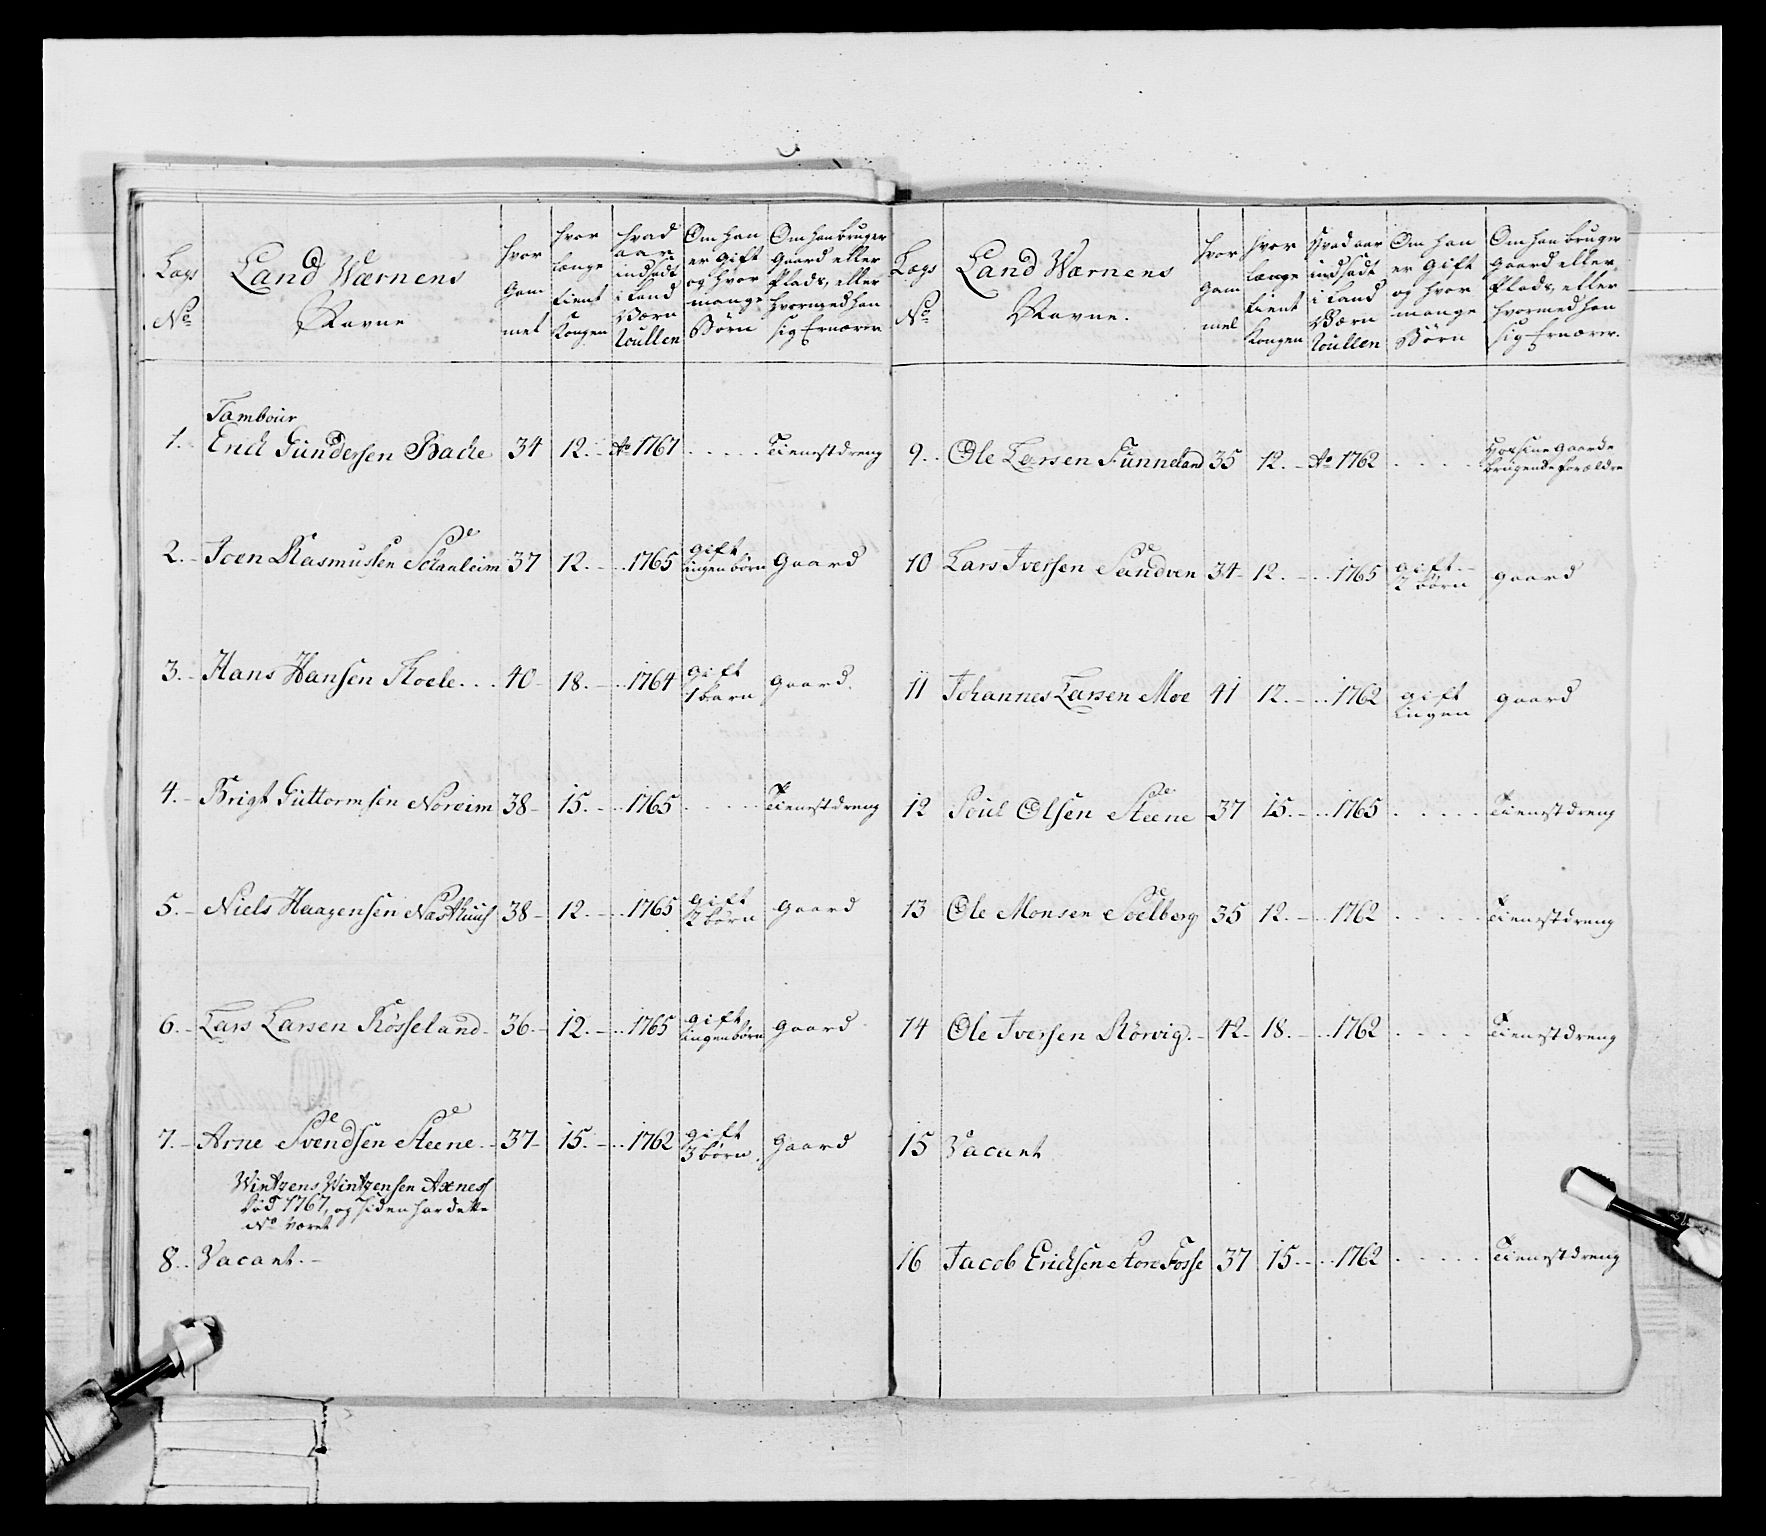 Lægs
No
Land Wærnens
Navne
hvor
Gam
mel
hvor
længe
tient
Kongen
hvad
aar
indsadt
i Land
Værn
Roullen
Om han
er Gift
og hvor
mange
Børn
Om han bruger
Gaard eller
Plads, eller
hvormed han
sig Ernærer
Tambour
1. Erich Gundersen Bache 34 12. Ao 1767 Tienestdreng
2. Joen Rasmussen 37 12. 1765 gift ingen børn Gaard
3. Hans Hansen Schoele 40 18. 1764 gift 1 barn gaard.
4. Brigt Guttormsen Noreim 38 15. 1765 Tienestdreng
5. Niels Haagensen Næsthuus 38 12. 1765 gift 2 børn gaard
6. Lars Larsen Rösseland 36 12. 1765 gift ingen børn gaard
7. Arne Svendsen Steene 37 15. 1762 gift 3 børn. gaard
Wintzens Wintzensen Axnes
død 1767, og siden har dette
No været
8. Vacant.
Lægs
No
Land Wærnens
Navne.
hvor
gam
mel
hvor
længe
tient
Kongen
hvad aar
indsadt
i Land
Værn
Roullen
Om han
er Gift
og hvor
mange
Børn
Om han bruger
Gaard eller
Plads, eller
hvormed han
sig Ernærer.
9. Ole Larsen Funneland 35 12. Ao 1762 hos sine gaard
brugende forældre
10 Lars Iversen Sandven 34 12. 1765 gift 2 börn gaard
11 Johannes Larsen Moe 41 12. 1762 gift ingen gaard
12 Poul Olsen Steene 37 15. 1765 Tienestdreng
13 Ole Monsen Soelberg 35 12. 1762 Tienestdreng
14 Ole Iversen Rörvig 42 18. 1762 Tienestdreng
15 Vacant
16 Jacob Erichsen StoreFosse 37 15. 1762 Tienestdreng